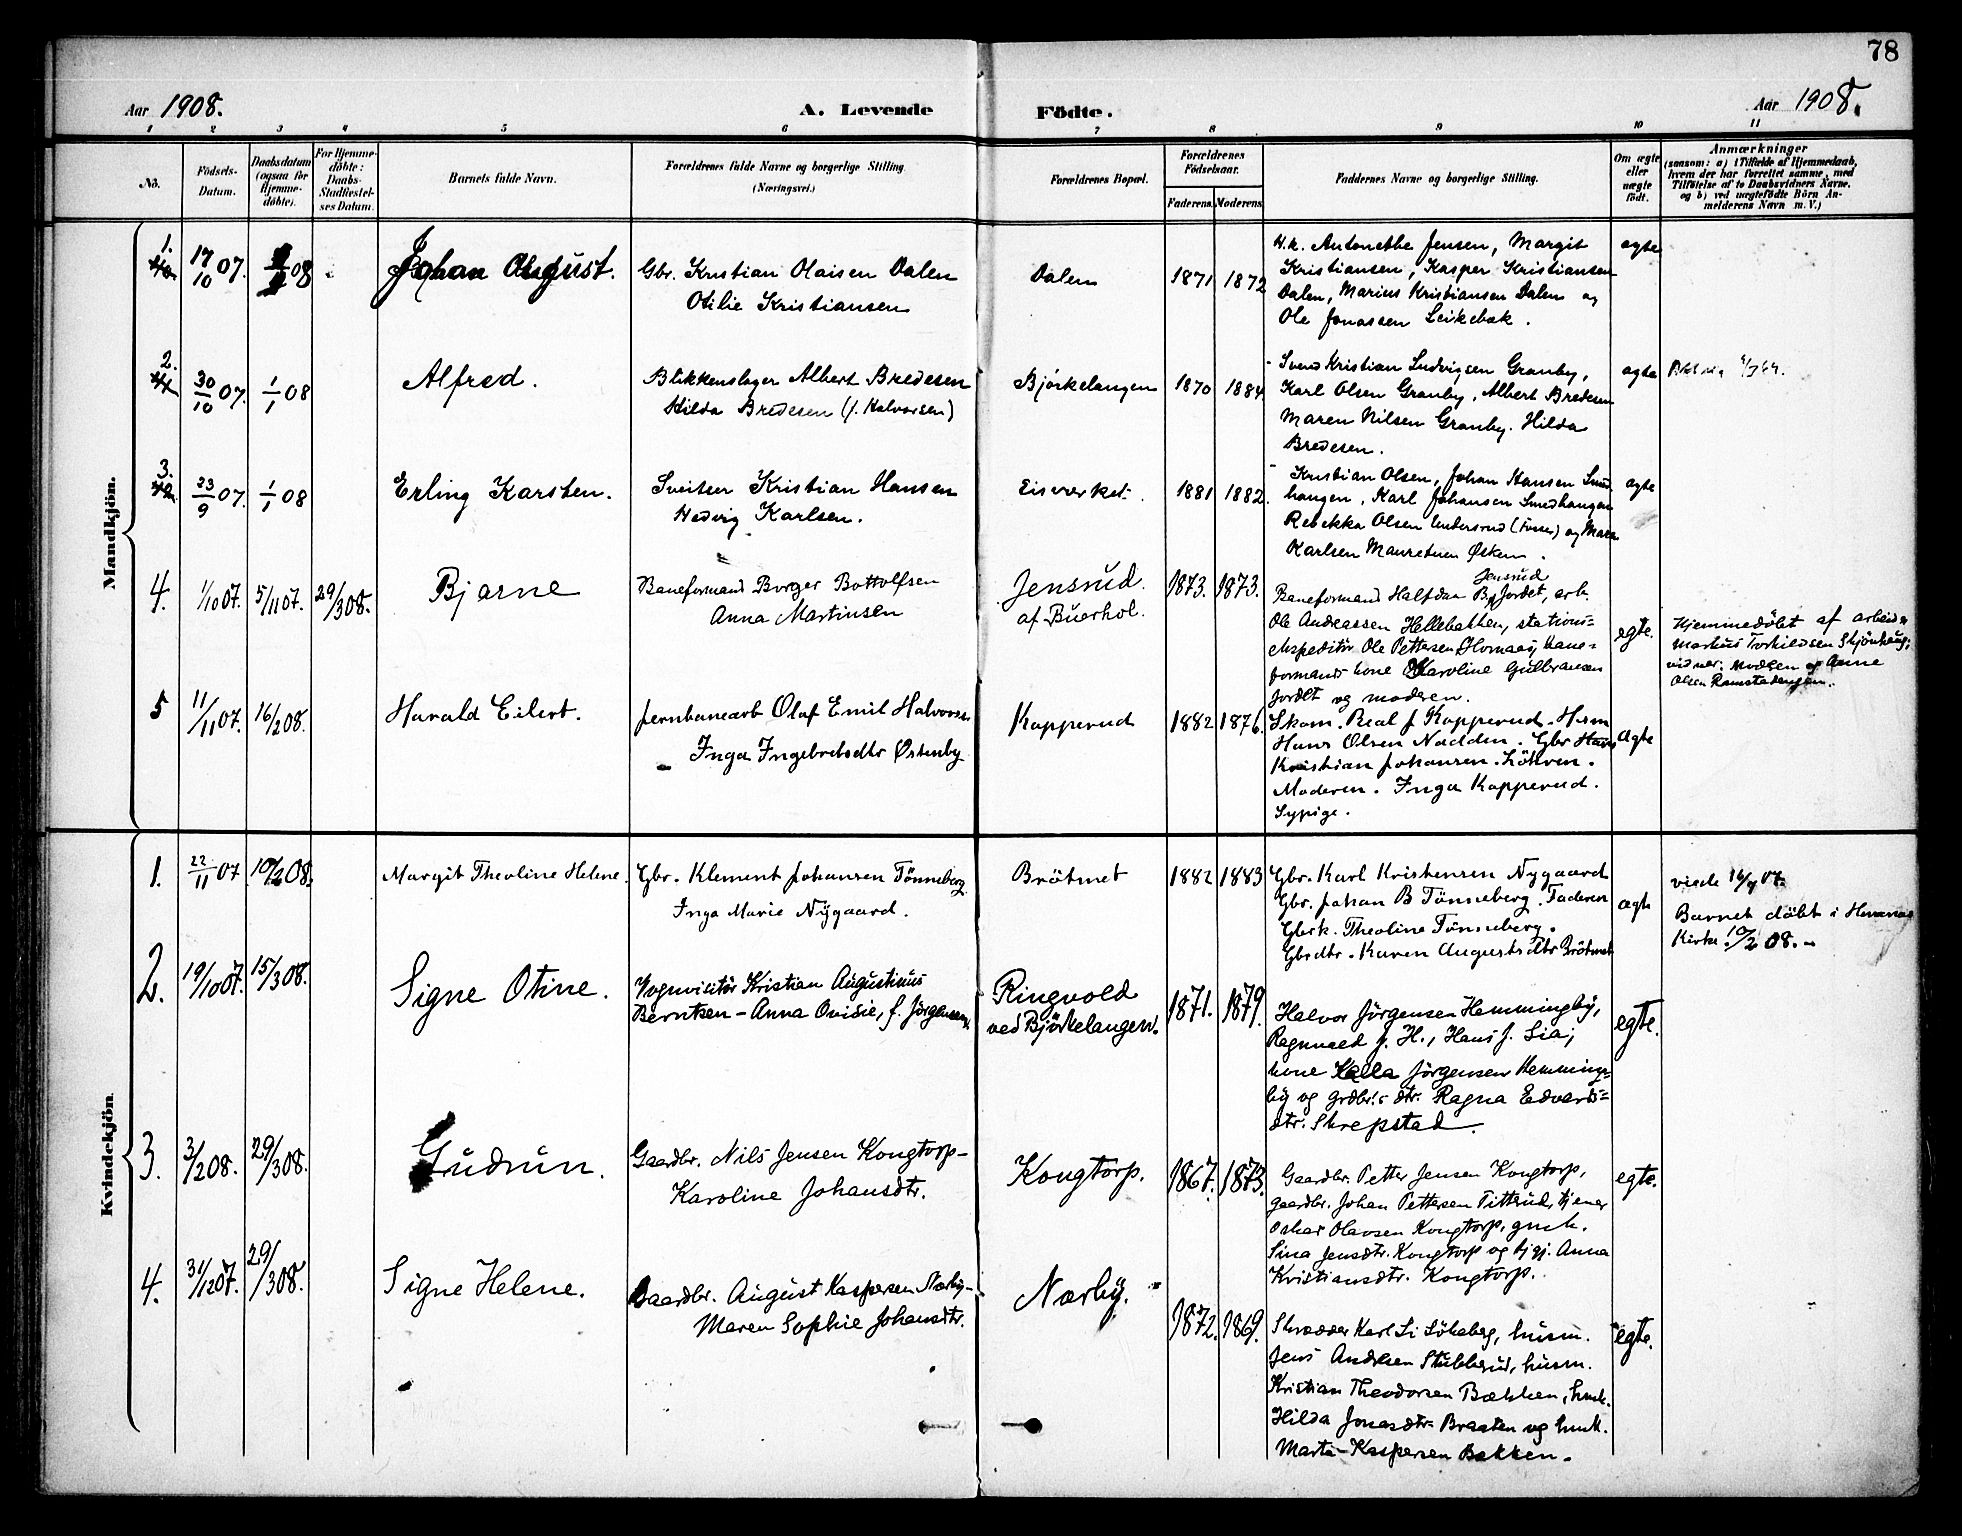 78
Aar 1908.
A. Levende
Födte.
Aar 1908.
1 2 3 4 5 6 7 8 9 10 11
No.
Födsels-Datum.
Daabsdatum (ogsaa for Hjemme-döbte).
For Hjemme-döbte: Daabs-Stadfæstel-ses Datum.
Barnets fulde Navn.
Forældrenes fulde Navne og borgerlige Stilling
(Næringsvei.)
Forældrenes Bopæl.
Forældrenes Födselsaar.
Faderens. Moderens.
Faddernes Navne og borgerlige Stilling.
Om ægte eller uægte födt.
Anmærkninger
(saasom: a) i Tilfælde af Hjemmedaab,
hvem der har forrettet samme, med
Tilföielse af to Daabsvidners Navne,
og b) ved uægtefödte Börn An-
melderens Navn m. V.)
Mandkjön.
1.
17/10 07.
08
Johan August.
Gbr. Kristian Olaisen Dalen
Otilie Kristiansen
Dalen
1871 1872
K.k. Antonethe Jensen, Margit
Kristiansen, Kasper Kristiansen
Dalen, Marius Kristiansen Dalen og
Ole Jonassen Leikebæk.
ægte
2.
30/10 07.
1/1 08
Alfred.
Blikkenslager Albert Bredesen
Hilda Bredesen (f. Halvorsen)
Bjørkelangen
1870 1884
Svend Kristian Ludvigsen Granby,
Karl Olsen Granby, Albert Bredesen
Maren Nilsen Granby. Hilda
Bredesen.
ægte
3.
23/9 07.
1/1 08
Erling Karsten.
Sveitser Kristian Hansen
Hedvig Karlsen.
Eisverket.
1881 1882.
Kristian Olsen, Johan Hansen Smed-
hangen, Karl Johansen Smedhangen
Rebekka Olsen Undersrud (Fosser) og Maren
Karlsen
ægte
4.
1/10 07.
5/11 07.
29/3 08.
Bjarne
Baneformand Borger Bottolfsen
Anna Martinsen
Jensrud
af Buerhol.
1873. 1873.
Jensrud
Baneformand Halfdan B. Jordet, arb.
Ole Andreassen Hellebækken, stations=
ekspeditör Ole Pettersen Hornaas, bane=
formands kone Karoline Gulbransen
Jordet og moderen.
egte.
Hjemmedöbt af arbeider
Markus Torkildsen Skjönhaug,
vidner: Moderen og Anne
Olsen Ramstadengen.
5
11/11 07.
16/2 08.
Harald Eilert.
Jernbanearb Olaf Emil Halvorsen
Inga Ingebretsdtr Østenby
Kopperud
1882 1876.
Skom. Beal J Kopperud. Herm
Hans Olsen Nadden. Gbr Hans
Kristian Johansen Löhren.
Moderen. Inga Kopperud.
Sypige.
ægte
Kvindekjön.
1.
22/11 07
10/2 08.
Margit Theoline Helene.
Gbr. Klement Johansen Tönneberg
Inga Marie Nygaard.
Brötmet
1882 1883
Gbr. Karl Kristensen Nygaard
Gbr. Johan B Tönneberg. Faderen
Gbrk. Theoline Tönneberg.
Gbrdtr. Karen Augustsdtr Brötmet
ægte
viede 16/4 07.
Barnet döbt i Hemnæs
Kirke 10/2 08.
2.
19/10 07.
15/3 08.
Signe Otine.
Vognvisitör Kristian Augustinus
Berntsen – Anna Ovidie, f. Jörgensen.
Ringvold
ved Björkelangen.
1871. 1879.
Halvor Jörgensen Hemmingby,
Ragnvald J. H., Hans J. Lia,
kone Kalla Jörgensen Hemming=
by og grdbr.s dtr. Ragna Edvards=
dtr. Skrepstad.
egte.
3.
3/2 08.
29/3 08.
Gudrun.
Gaardbr. Nils Jensen Kongtorp –
Karoline Johansdtr.
Kongtorp.
1867. 1873.
Gaardbr. Petter Jensen Kongtorp,
gaardbr. Johan Pettersen Titterud, tjener
Oskar Olavsen Kongtorp, gmk.
Lina Jensdtr. Kongtorp og tjpj. Anna
Kristiansdtr. Kongtorp.
egte.
4.
31/12 07.
29/3 08.
Signe Helene.
Gaardbr. August Kaspersen Nærby –
Maren Sophie Johansdtr.
Nærby.
1872. 1869.
Skrædder Karl Li Lökeberg, husm.
Jens Andresen Stubberud, husm.
Kristian Theodorsen Bækken, hmk.
Hilda Jonasdtr. Braaten og hmk.
Marta Kaspersen Bækken.
egte.